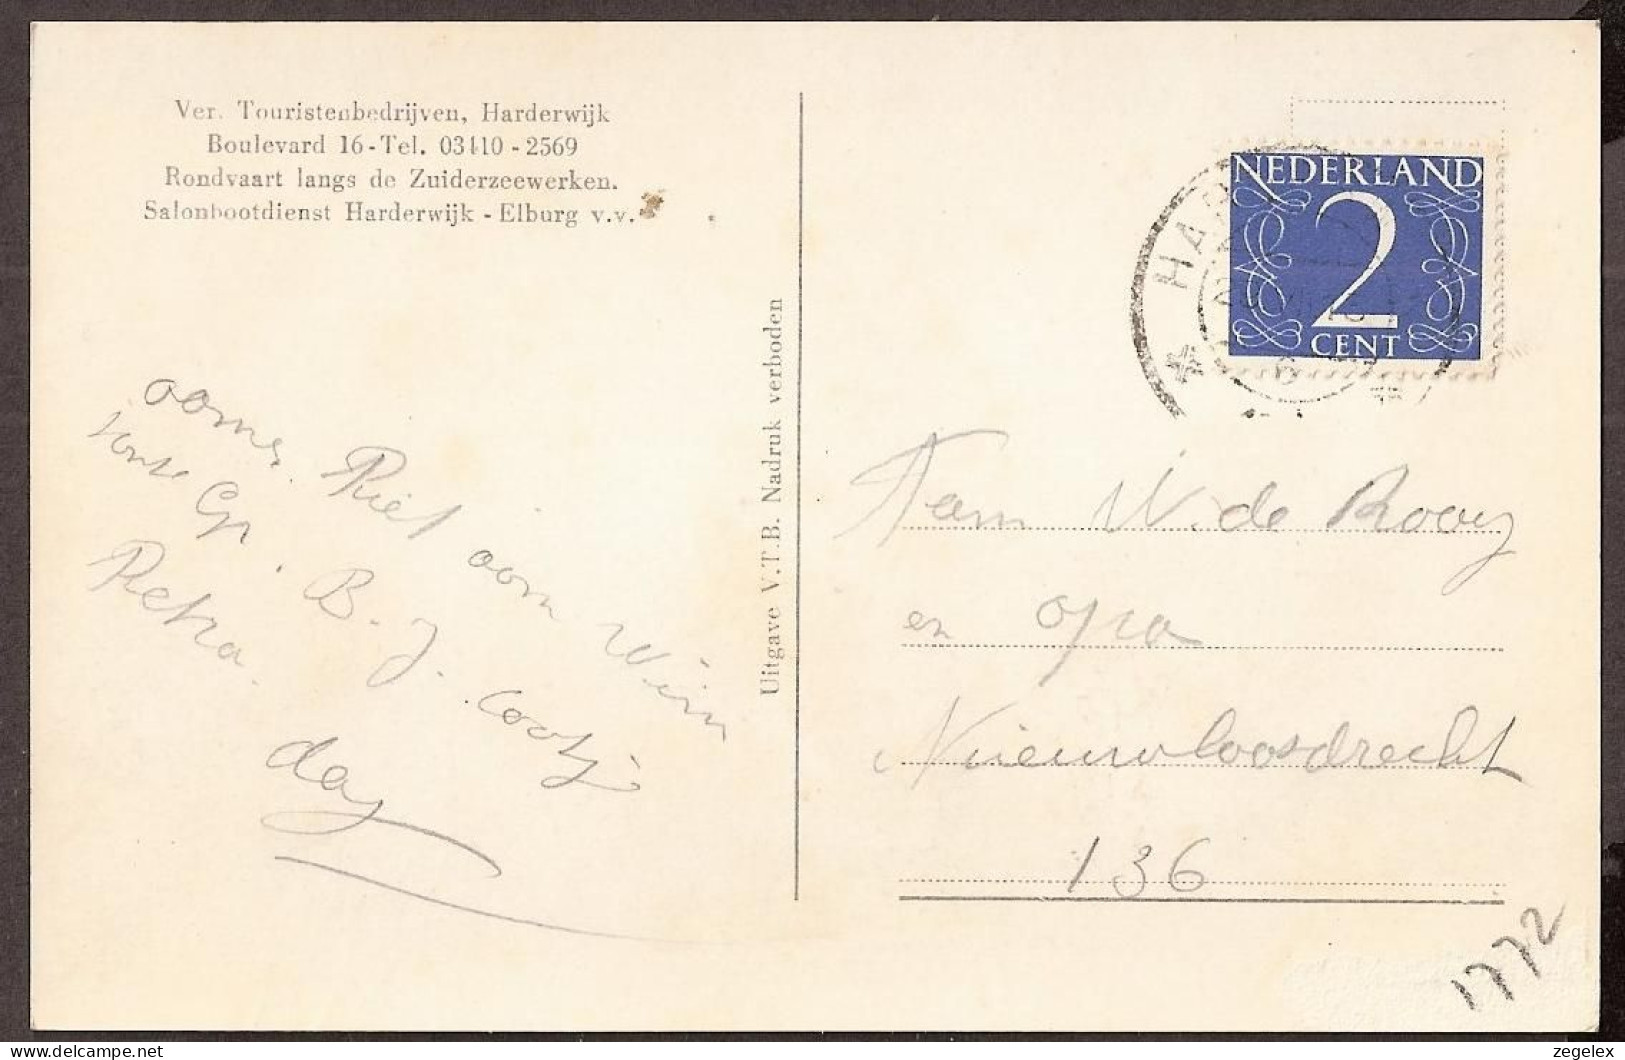 Ver. Touristenbedrijven, Harderwijk
Boulevard 16 - Tel. 03410 - 2569
Rondvaart langs de Zuiderzeewerken.
Salonbootdienst Harderwijk - Elburg v.v.
Uitgave V.T.B. Nadruk verboden
NEDERLAND
2
CENT
HAR
oome Piet oom Wim
Gr. B. J. Cootje
Petra.
day
Fam W. de Rooy
en opa
Nieuwloosdrecht
136
1772
zegelex
delcampe.net